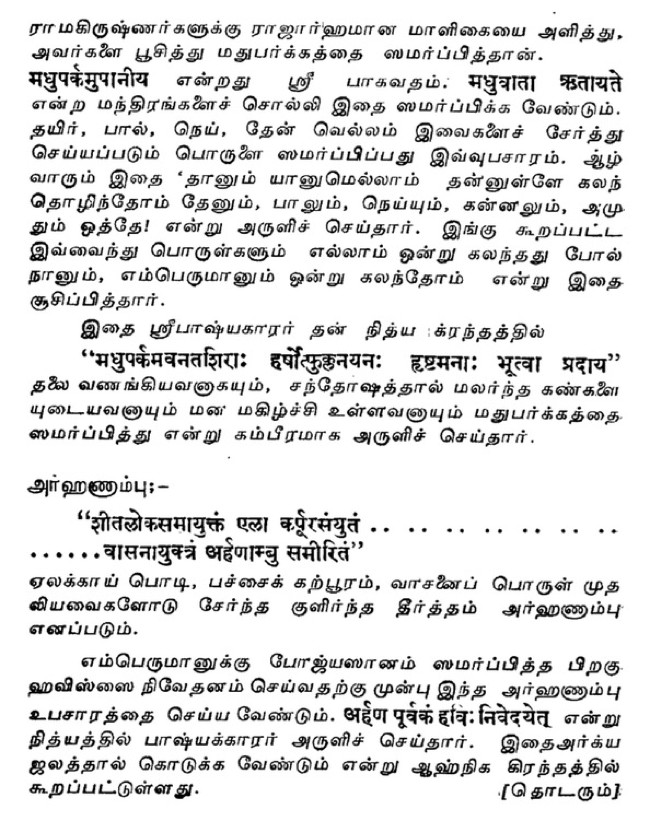 ராமகிருஷ்ணர்களுக்கு ராஜார்ஹமான மாளிகையை அளித்து,
அவர்களை பூசித்து மதுபர்க்கத்தை ஸமர்ப்பித்தான்.
मधुपर्कमुपानीय என்றது ஸ்ரீ பாகவதம். मधुवाता ऋतायते
என்ற மந்திரங்களைச் சொல்லி இதை ஸமர்ப்பிக்க வேண்டும்.
தயிர், பால், நெய், தேன் வெல்லம் இவைகளைச் சேர்த்து
செய்யப்படும் பொருளை ஸமர்ப்பிப்பது இவ்வுபசாரம். ஆழ்
வாரும் இதை 'தானும் யானுமெல்லாம் தன்னுள்ளே கலந்
தொழிந்தோம் தேனும், பாலும், நெய்யும், கன்னலும், அமு
தும் ஒத்தே! என்று அருளிச் செய்தார். இங்கு கூறப்பட்ட
இவ்வைந்து பொருள்களும் எல்லாம் ஒன்று கலந்தது போல்
நானும், எம்பெருமானும் ஒன்று கலந்தோம் என்று இதை
சூசிப்பித்தார்.
இதை ஸ்ரீபாஷ்யகாரர் தன் நித்ய க்ரந்தத்தில்
“मधुपर्कमवनतशिराः हर्षोत्फुल्लनयनः हृष्टमनाः भूत्वा प्रदाय”
தலை வணங்கியவனாகயும், சந்தோஷத்தால் மலர்ந்த கண்களை
யுடையவனாயும் மன மகிழ்ச்சி உள்ளவனாயும் மதுபர்க்கத்தை
ஸமர்ப்பித்து என்று கம்பீரமாக அருளிச் செய்தார்.
அர்ஹணாம்பு;–
“शीतलोकसमायुक्तं एला कर्पूरसंयुतं .. .. .. .. .. ..
......वासनायुक्त्रं अर्हणाम्बु समीरितं”
ஏலக்காய் பொடி, பச்சைக் கற்பூரம், வாசனைப் பொருள் முத
லியவைகளோடு சேர்ந்த குளிர்ந்த தீர்த்தம் அர்ஹணாம்பு
எனப்படும்.
எம்பெருமானுக்கு போஜ்யஸானம் ஸமர்ப்பித்த பிறகு
ஹவிஸ்ஸை நிவேதனம் செய்வதற்கு முன்பு இந்த அர்ஹணாம்பு
உபசாரத்தை செய்ய வேண்டும். अर्हण पूर्वकं हविः निवेदयेत् என்று
நித்யத்தில் பாஷ்யக்காரர் அருளிச் செய்தார். இதைஅர்க்ய
ஜலத்தால் கொடுக்க வேண்டும் என்று ஆஹ்நிக கிரந்தத்தில்
கூறப்பட்டுள்ளது. [தொடரும்]